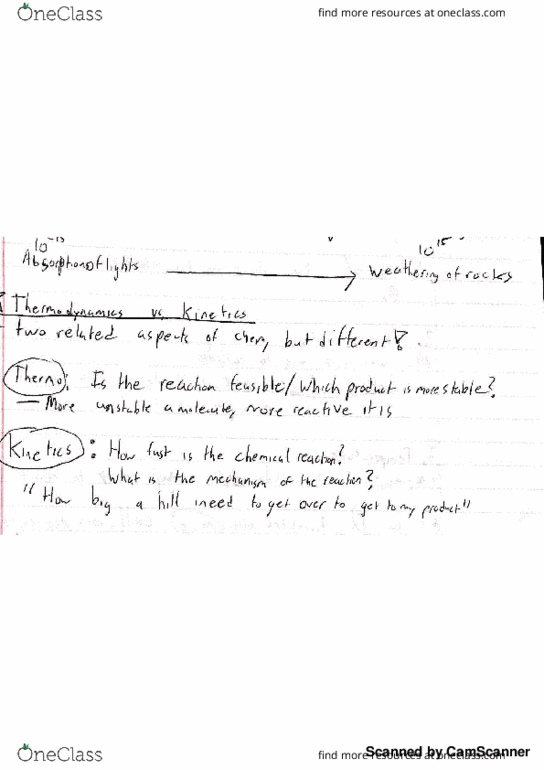 OneClass
find more resources at oneclass.com
10⁻¹⁵
10¹⁵ s
Absorption of lights → Weathering of rocks
Thermodynamics vs. Kinetics
two related aspects of chem, but different!
Thermo: Is the reaction feasible/Which product is more stable?
— More unstable a molecule, more reactive it is
Kinetics: How fast is the chemical reaction?
What is the mechanism of the reaction?
"How big a hill i need to get over to get to my product"
OneClass
find more resources at oneclass.com
Scanned by CamScanner